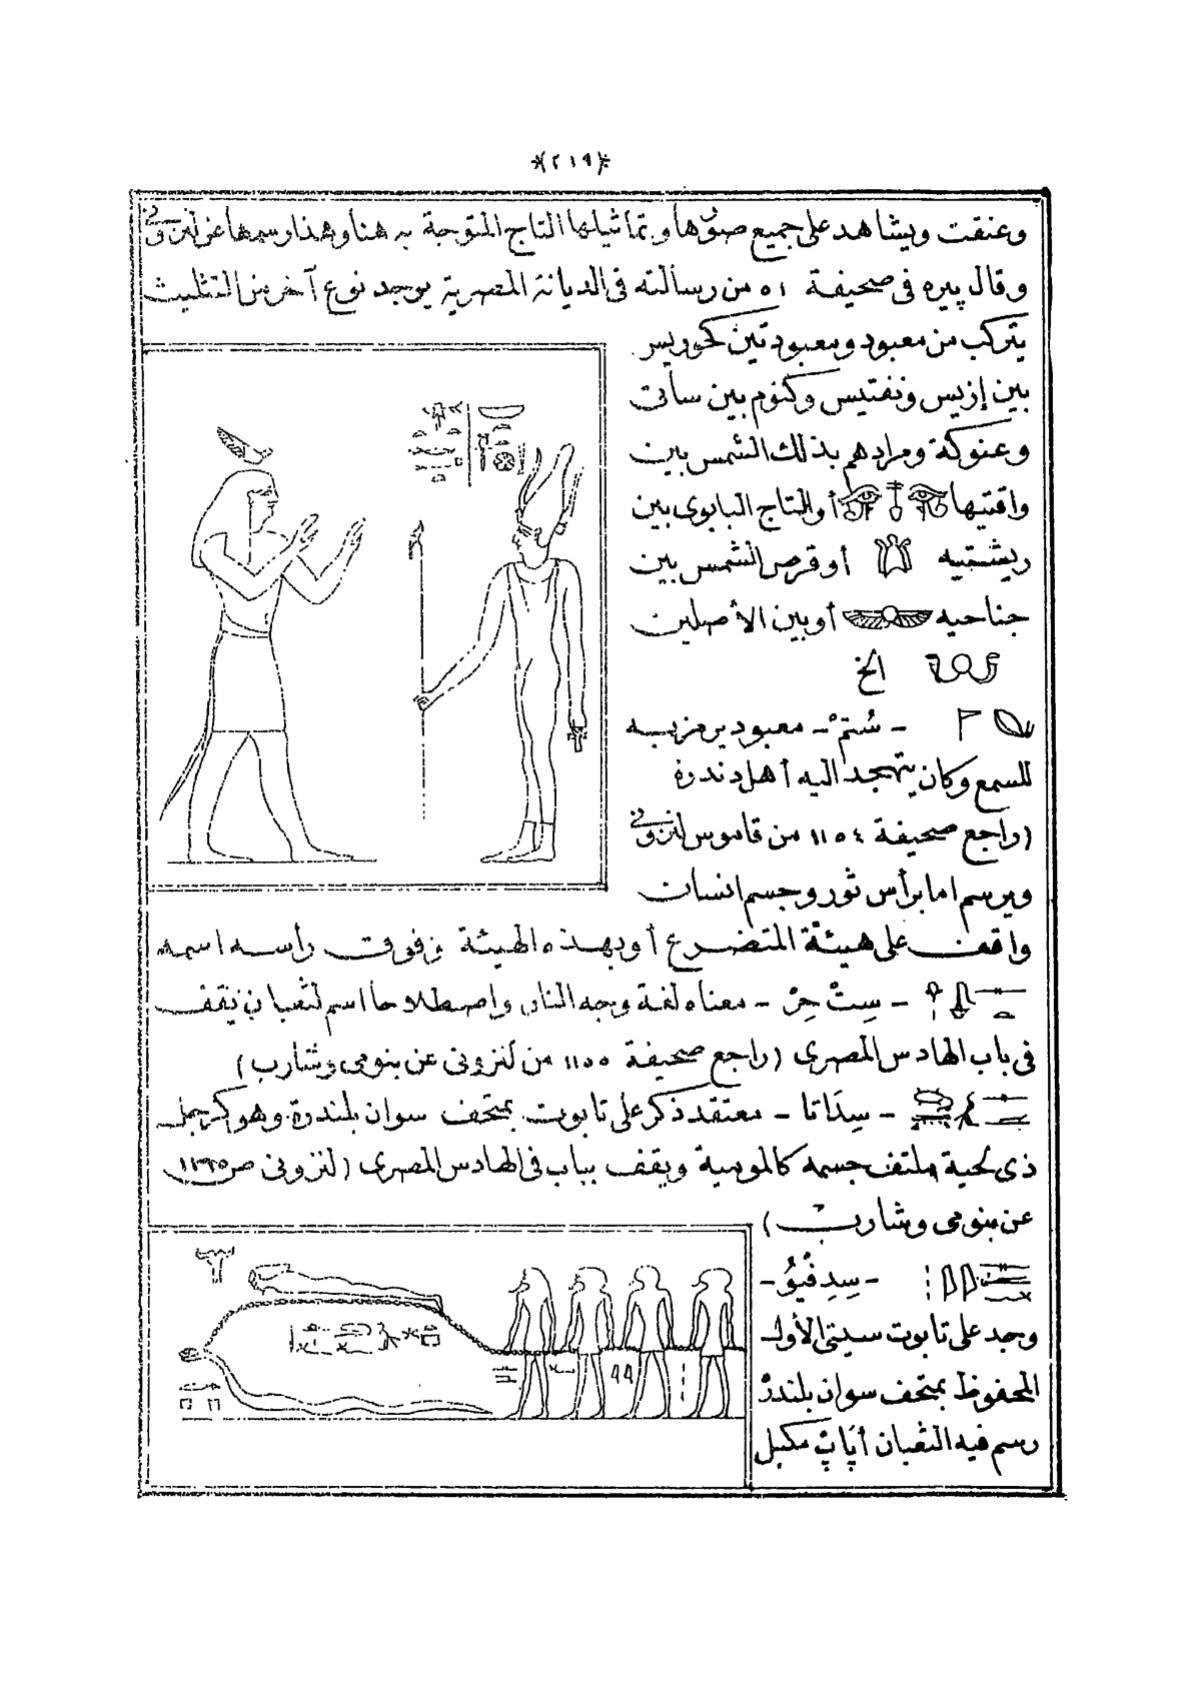 *(٢١٩)*
وعنقت ويشاهد على جميع صورها وتماثيلها التاج المتوجة به هنا وهذا رسمها عن لنزونى
وقال پيره فى صحيفة ٥١ من رسالته فى الديانة المصرية يوجد نوع آخر من التثليث
يتركب من معبود ومعبودتين كحوريس
بين إزيس ونفتيس وكنوم بين ساتى
وعنوكة ومرادهم بذلك الشمس بين
واقتيها أو التاج البابوى بين
ريشتيه أو قرص الشمس بين
جناحيه أو بين الأصلين
الخ
- سُتمْ - معبود يرمز به
للسمع وكان يتهجد اليه أهل دندرة
(راجع صحيفة ١١٥٤ من قاموس لنزونى
ويرسم اما برأس ثور وجسم انسان
واقف على هيئة المتضرع أو بهذه الهيئة وفوق رأسه اسمه
- سِتْ حِرْ - معناه لغة وجه النار واصطلاحا اسم لثعبان يقف
فى باب الهادس المصرى (راجع صحيفة ١١٥٥ من لنزونى عن بنومى وشارب)
- سِدَاتا - معتقد ذكر على تابوت بمتحف سوان بلندرة وهو كرجل
ذى لحية ملتف جسمه كالموميه ويقف بباب فى الهادس المصرى (لنزونى ص
عن بنومى وشارب)
- سِدِفْيُو -
وجد على تابوت سيتى الأول
المحفوظ بمتحف سوان بلندرة
رسم فيه الثعبان أپَاپْ مكبل